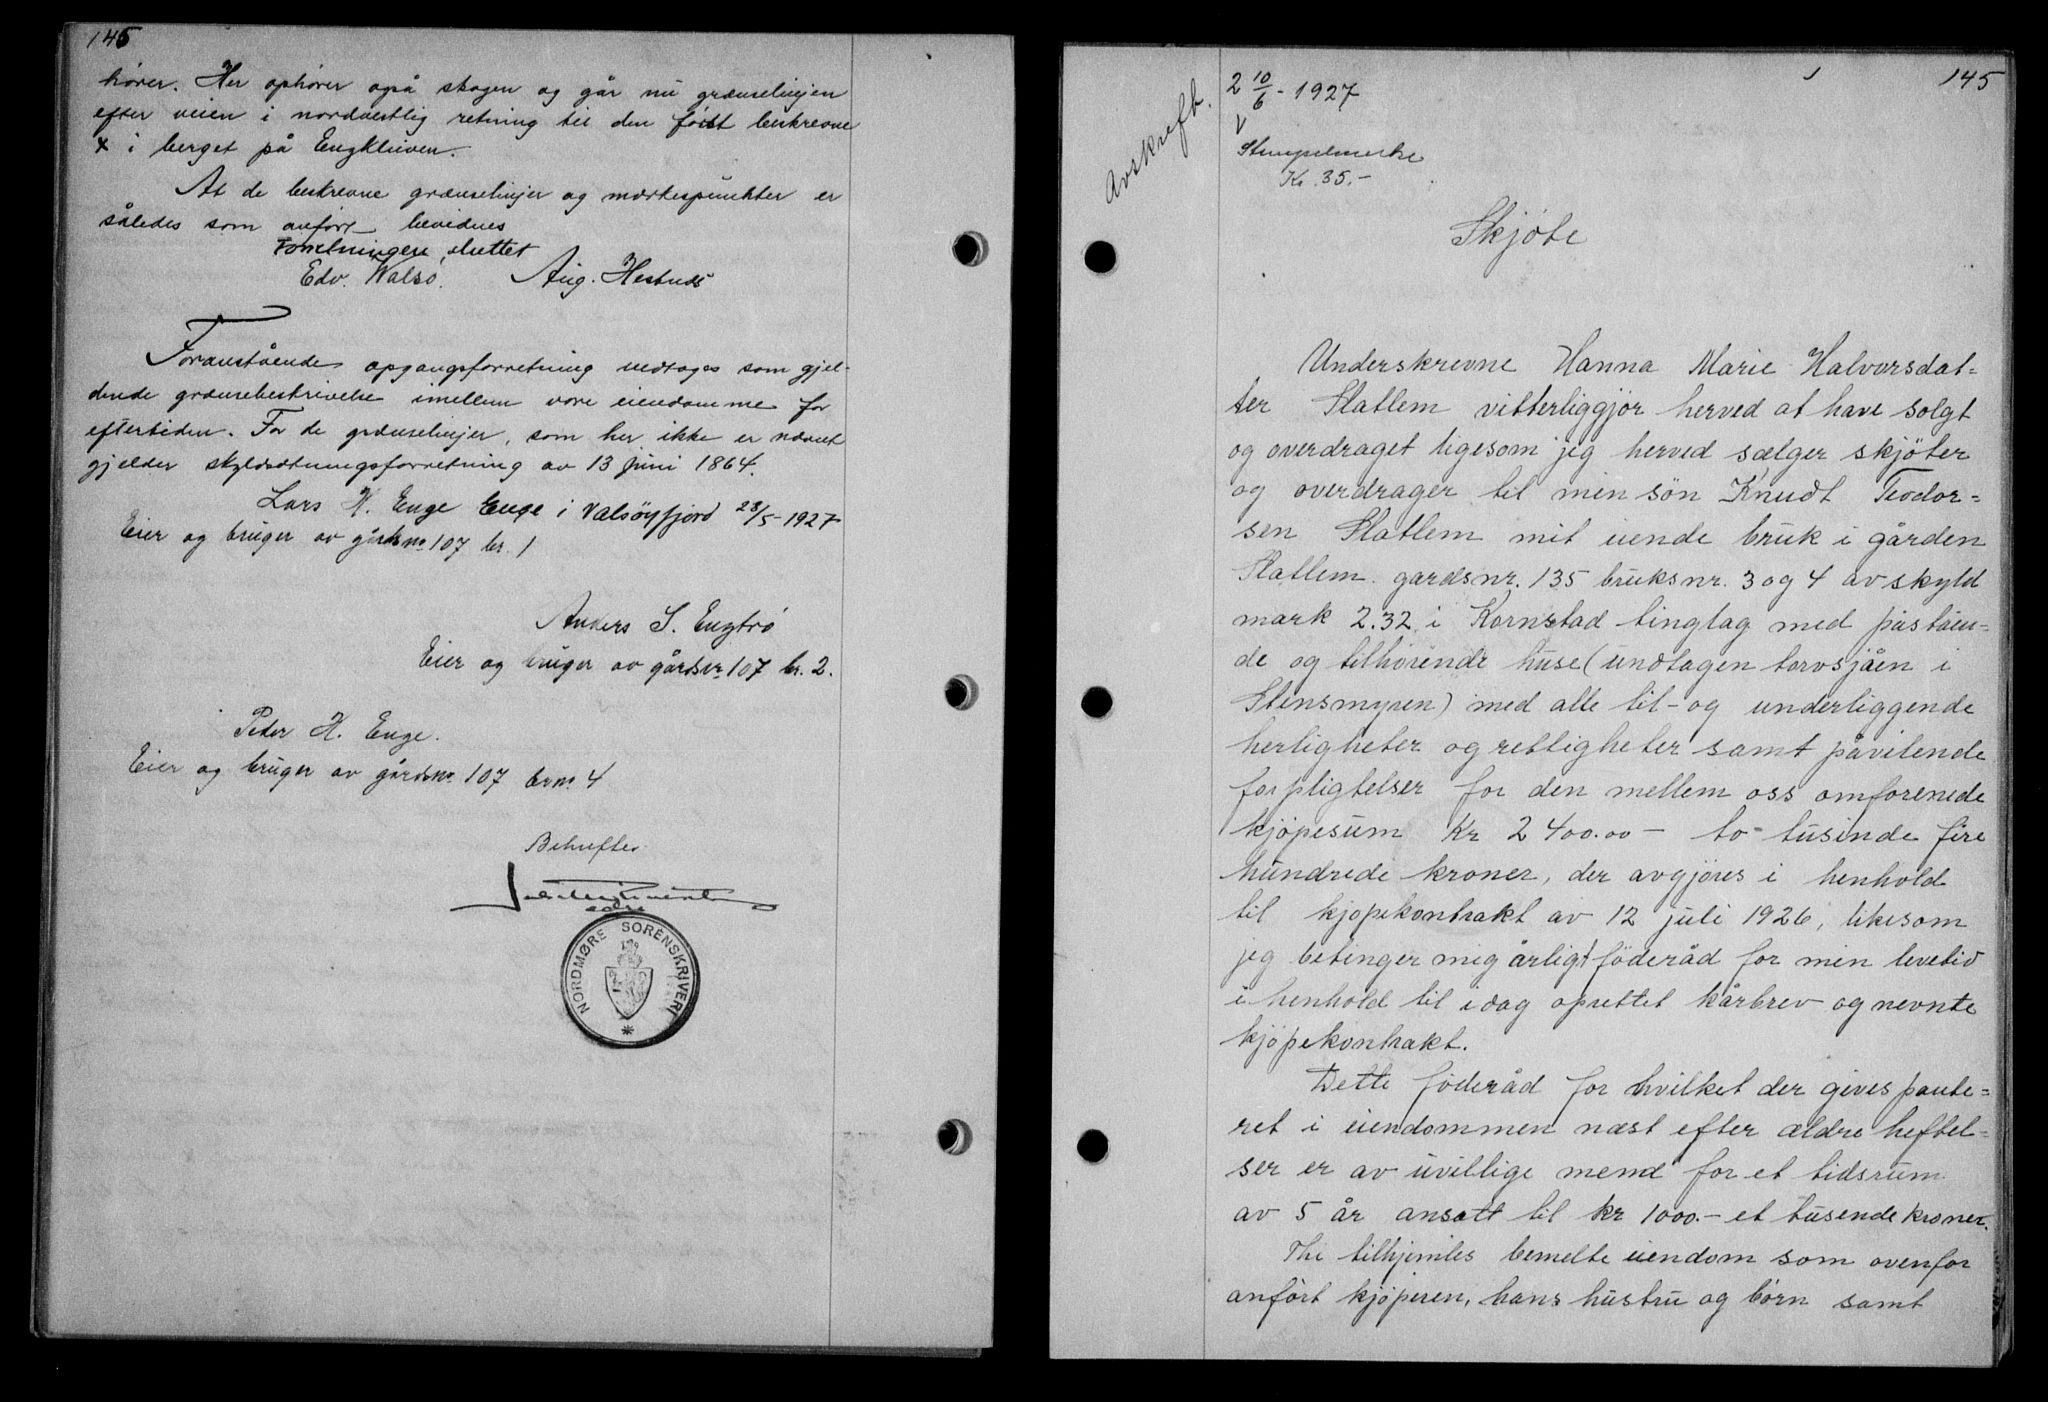 145
hører. Her ophører også skogen og går nu grænselinjen
efter veien i nordvestlig retning til den først beskrevne
x i berget på Engkluven.
At de beskrevne grænselinjer og mærkespunkter er
således som anført bevidnes
Forretningen sluttet
Edv. Walsö. Aug. Hestnes
Foranstående opgangsforretning vedtages som gjel-
dende grænsebeskrivelse imellem vore eiendomme for
eftertiden. For de grænselinjer, som her ikke er nævnt
gjelder skyldsætningsforretning av 13 juni 1864.
Lars H. Enge Enge i Valsöyfjord 28/5-1927
Eier og bruger av gårdsno 107 br. 1
Anders S. Engtrö
Eier og bruger av gårdsnr 107 br. 2.
Peder H. Enge.
Eier og bruger av gårdsno. 107 brno. 4
Bekræftes
NORDMØRE SORENSKRIVERI
145
2 10/6-1927
Avskrift.
Stempelmerke
Kr. 35.-
Skjöte
Underskrevne Hanna Marie Halvorsdat=
ter Slatlem vitterliggjør herved at have solgt
og overdraget ligesom jeg herved sælger skjöter
og overdrager til min sön Knudt Teodor=
sen Slatlem mit eiende bruk i gården
Slatlem gardsnr. 135 bruksnr. 3 og 4 av skyld
mark 2.32 i Kornstad tinglag med påståen=
de og tilhörende huse (undtagen torvsjåen i
Stensmyren) med alle til- og underliggende
herligheter og rettigheter samt påvilende
forpligtelser for den mellem oss omforenede
kjöpesum Kr 2400.00 - to tusinde fire
hundrede kroner, der avgjöres i henhold
til kjöpekontrakt av 12 juli 1926, likesom
jeg betinger mig årligt föderåd for min levetid
i henhold til idag oprettet kårbrev og nevnte
kjöpekontrakt.
Dette föderåd for hvilket der gives pante=
ret i eiendommen næst efter ældre heftel=
ser er av uvillige mend for et tidsrum
av 5 år ansatt til kr 1000.- et tusende kroner.
Thi tilhjemles bemelte eiendom som ovenfor
anfört kjöperen, hans hustru og börn samt